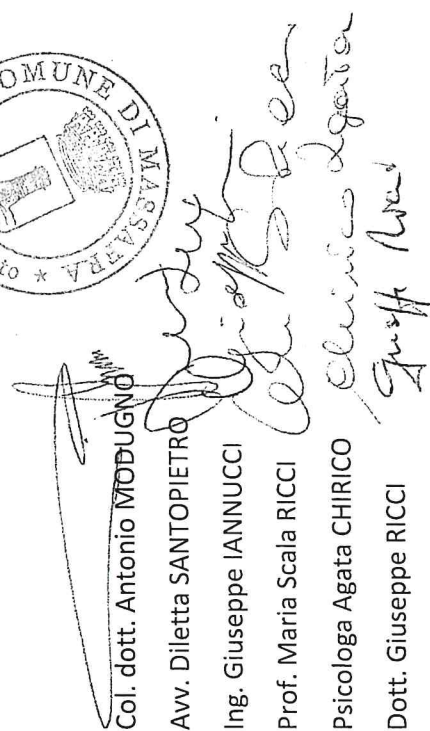 COMUNE DI MASSAFRA *
Col. dott. Antonio MODUGNO
Avv. Diletta SANTOPIETRO
Ing. Giuseppe IANNUCCI
Prof. Maria Scala RICCI
Psicologa Agata CHIRICO
Chirico Agata
Dott. Giuseppe RICCI
Giuseppe Ricci